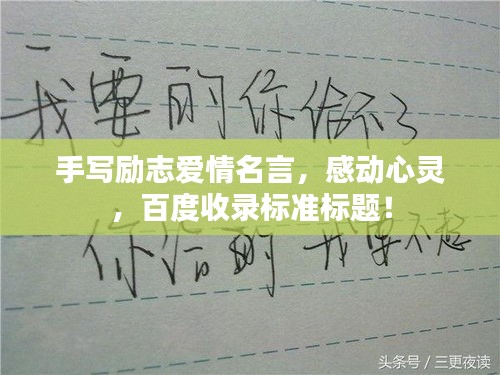 我要的你给不了
手写励志爱情名言，感动心灵
，百度收录标准标题！
你给的 我要不起
头条号 / 三更夜读